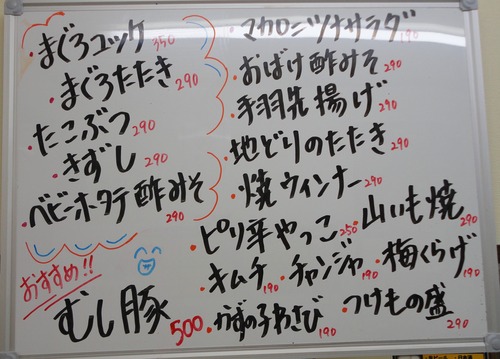 ・まぐろユッケ 350
・まぐろたたき 290
・たこぶつ 290
・きずし 290
・ベビーホタテ酢みそ 290
おすすめ!!
むし豚 500
・マカロニツナサラダ 190
・おばけ酢みそ 290
・手羽先揚げ 290
・地どりのたたき 290
・焼ウィンナー 290
・ピリ辛やっこ 250 ・山いも焼 290
・キムチ 190 ・チャンジャ 190 ・梅くらげ 190
・かずの子わさび 190 ・つけもの盛 290